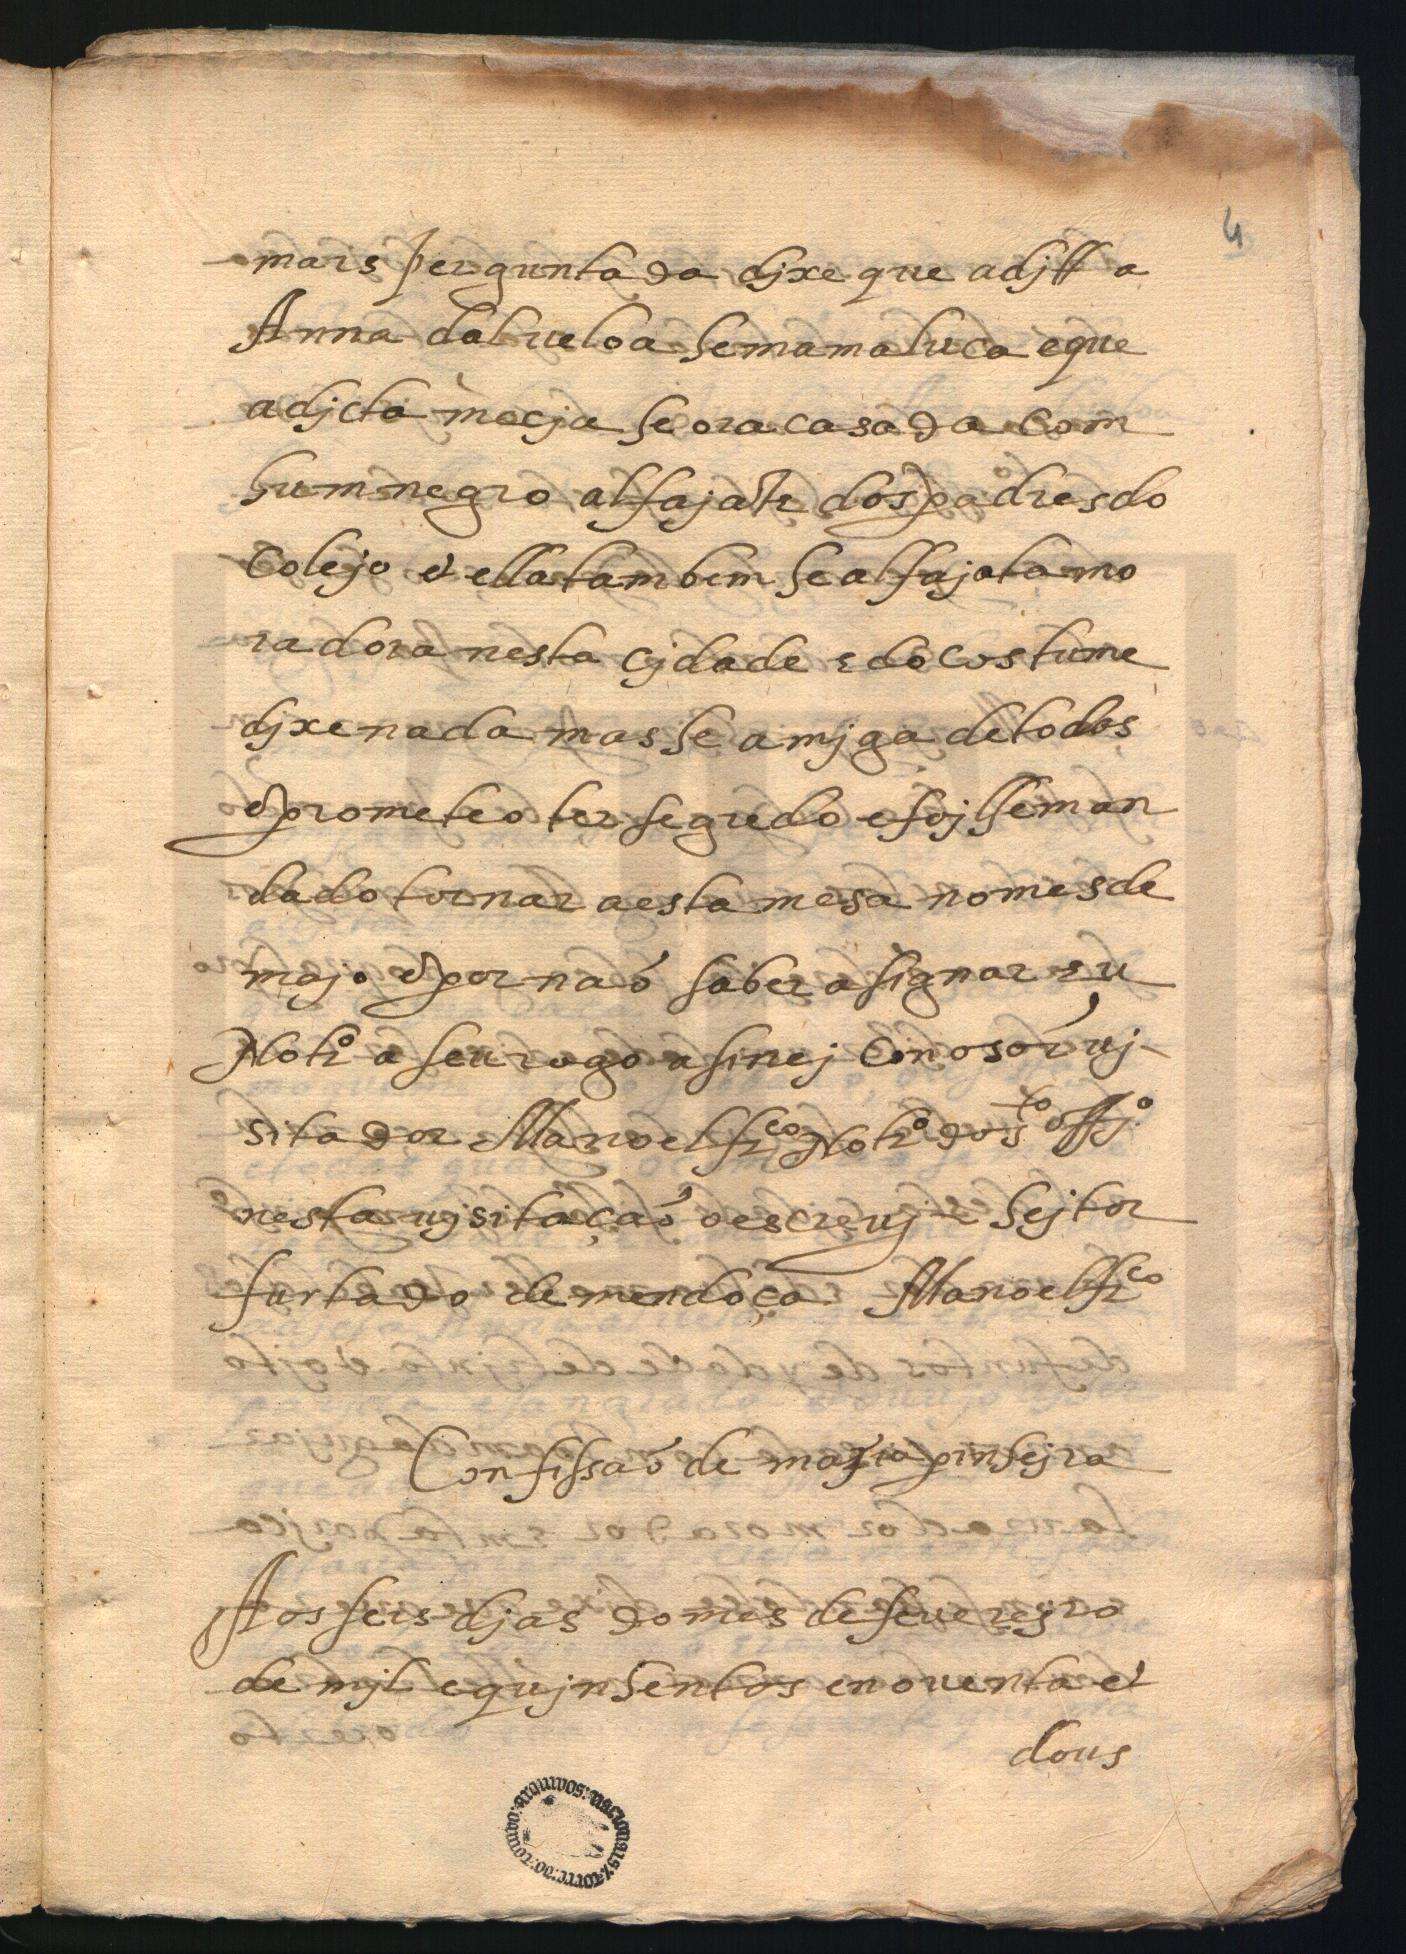 4
mais perguntada djxe que a djtta
Anna dalueloa he mamaluca e que
a djcta mecja he ora casada com
hum negro alfajate dos padres do
Colejo e ella tambem he alfajata mo
radora nesta cjdade e do costume
djxe nada mas he amjga de todos
e prometeo ter segredo e fojlhe man
dado tornar a esta mesa no mes de
majo e por naõ saber asignar eu
Notro a seu rogo asinej com o sõr vj
sitador Manoel frco Notro do sto offjo
nesta vjsitaçaõ o escrevj Hejtor
furtado de mendoça Manoel frco
Confissaõ de maria pinhejra
Aos seis djas do mes de fevereyro
de mjl e qujnhentos e noventa e
dous